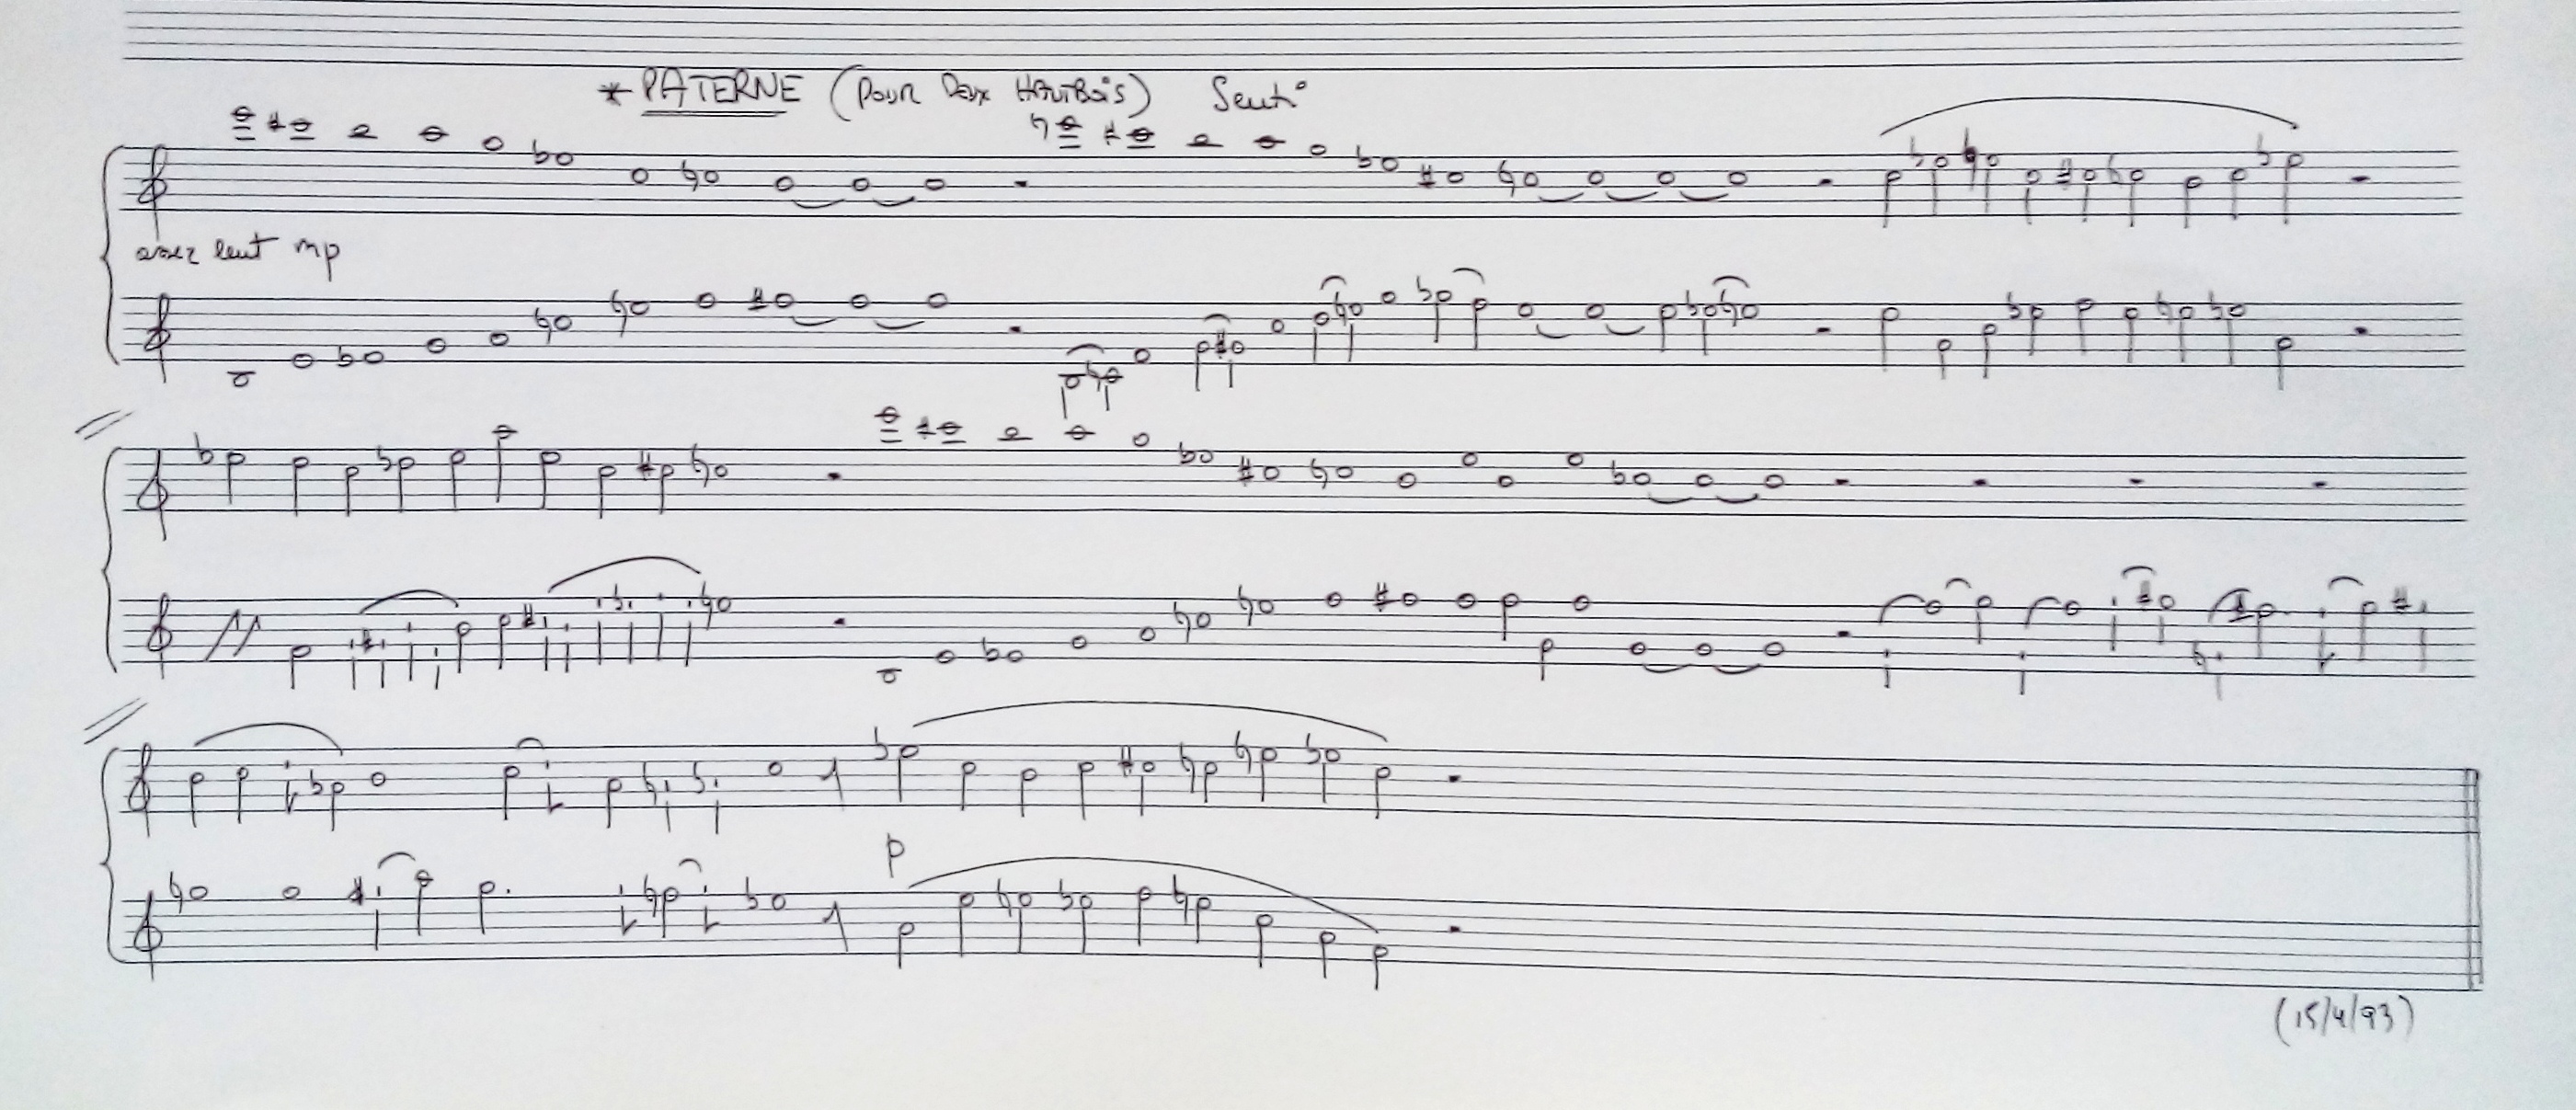 * PATERNE (Pour Deux HAUTBois) Senti
assez lent mp
p
(15/4/93)